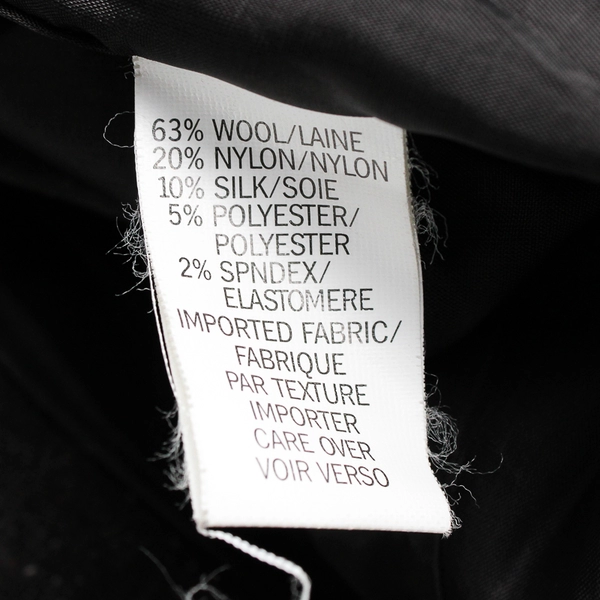 63% WOOL/LAINE
20% NYLON/NYLON
10% SILK/SOIE
5% POLYESTER/
POLYESTER
2% SPNDEX/
ELASTOMERE
IMPORTED FABRIC/
FABRIQUE
PAR TEXTURE
IMPORTER
CARE OVER
VOIR VERSO